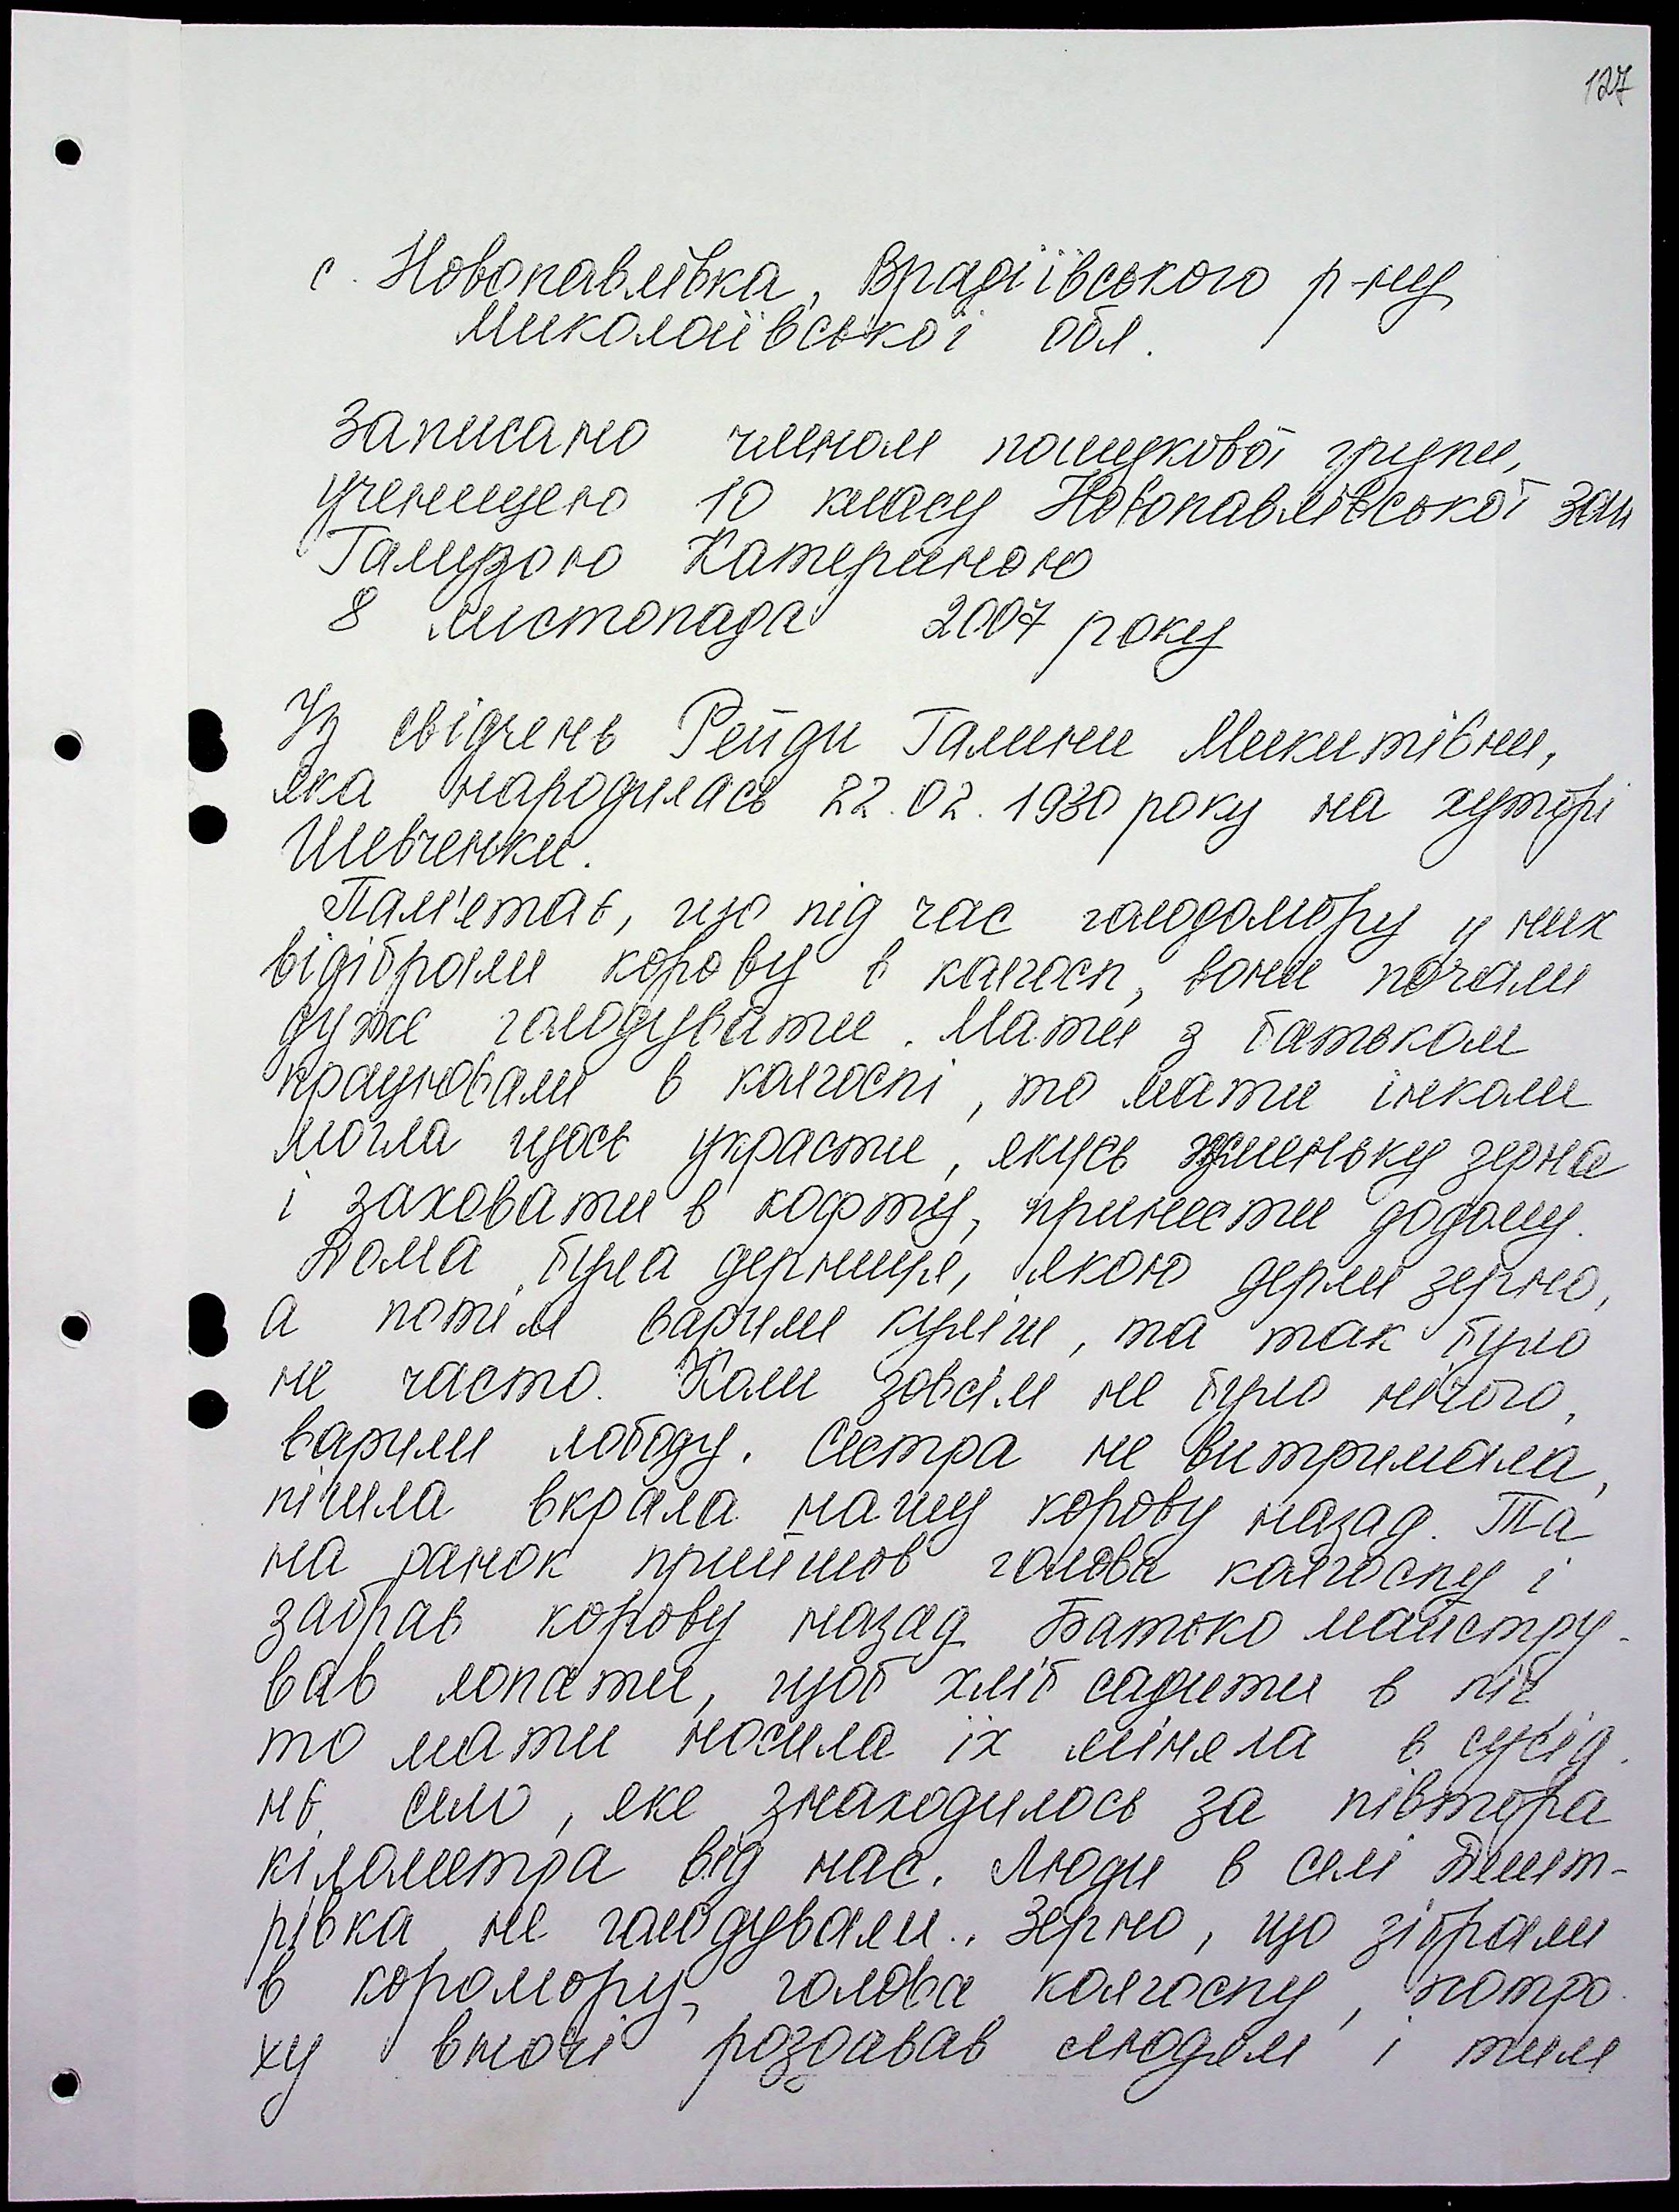 127
с. Новопавлівка, Врадіївського р-ну
Миколаївської обл.
Записано членом пошукової групи,
ученицею 10 класу Новопавлівської ЗОШ
Галузою Катериною
8 листопада 2007 року
Із свідчень Рейди Галини Микитівни,
яка народилась 22.02.1930 року на хуторі
Шевченки.
Пам'ятає, що під час голодомору у них
відібрали корову в колгосп, вони почали
дуже голодувати. Мати з батьком
працювали в колгоспі, то мати інколи
могла щось украсти, якусь жменьку зерна
і заховати в кофту, принести додому.
Дома була дерниця, якою дерли зерно,
а потім варили куліш, та так було
не часто. Коли зовсім не було нічого,
варили лободу. Сестра не витримала,
пішла вкрала нашу корову назад. Та
на ранок прийшов голова колгоспу і
забрав корову назад. Батько майстру-
вав лопати, щоб хліб садити в піч,
то мати носила їх міняла в сусід-
нє село, яке знаходилось за півтора
кілометра від нас. Люди в селі Дмит-
рівка не голодували. Зерно, що зібрали
в комору, голова колгоспу, потро-
ху вночі роздавав людям і тим